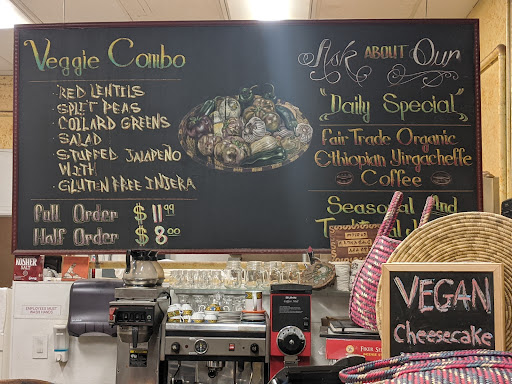 Veggie Combo
· RED LENTILS
· SPLIT PEAS
· COLLARD GREENS
SALAD
· STUFFED JALAPEÑO
WITH
· GLUTEN FREE INJERA
Full Order $11.99
Half Order $8.00
Ask ABOUT Our
"Daily Special"
Fair Trade Organic
Ethiopian Yirgacheffe
Coffee
Seasonal And
KOSHER
EMPLOYEES MUST
WASH HANDS
VEGAN
Cheesecake